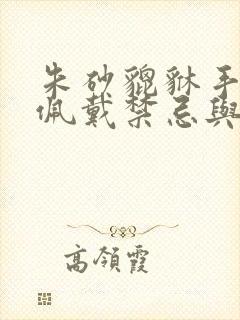 朱砂貔貅手
佩戴禁忌與
高領霞